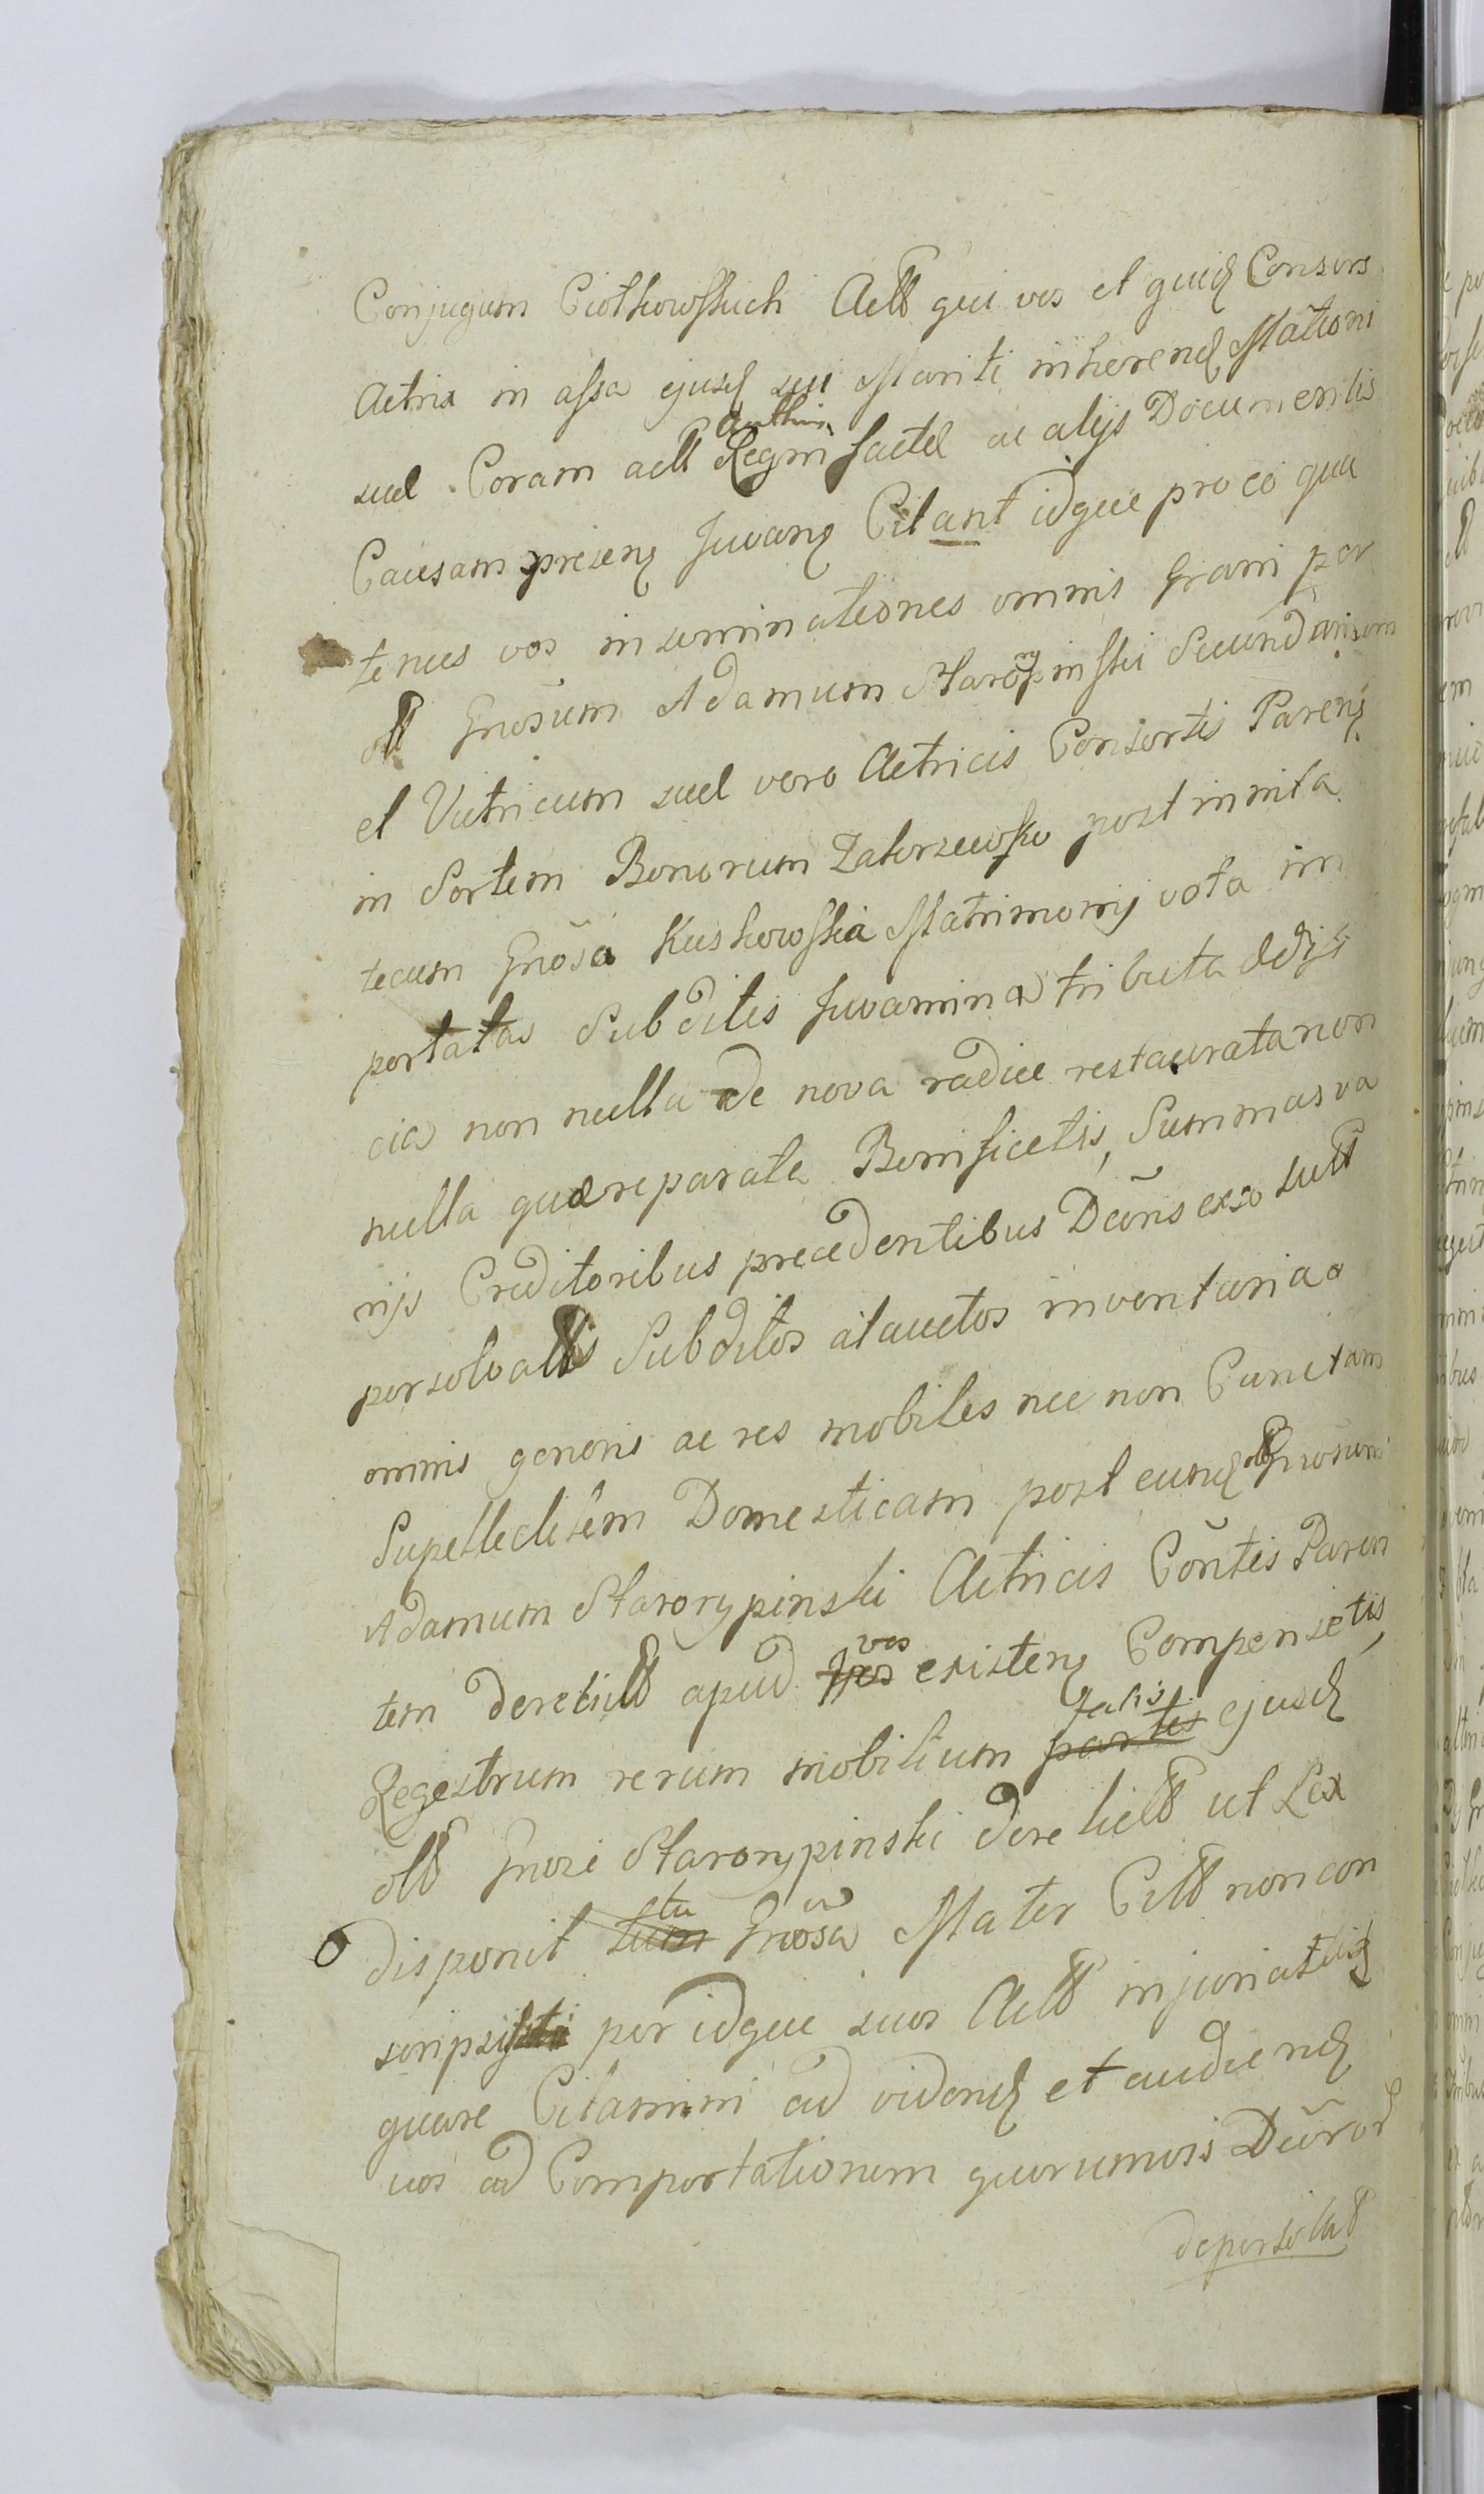 Conjugum Ciołkowskich Actt qui vos et quid Consors
Actrix in assa ejusd sui Mariti inherend Mationi
sud Coram actt Authen Regni facted ac alijs Documentis
Causam presens Juvans Citant idque pro eo qua
tenus vos inseminationes omnis Grani per
olt Gnosum Adamum Starorypinski Secundarium
et Vitricum sud vero Actricis Consortis Parens
in Sortem Bonorum Zakrzewsko post innita
tecum Gnosa Kuskowska Matrimonij vota im
portatas Subditis Juvamina tributa Edifi
cia non nulla de nova radice restaurata non
nulla quæ reparata Bonificetis, Summas va
rijs Creditoribus precedentibus Duris exso lutt
persolvattis Subditos alauctos inventaria o
omnis generis ac res mobiles nec non Cunctam
Supellectilem Domesticam post eund olt Gnosum
Adamum Starorypinski Actricis Contis Paren
tem derelictt apud vos existens Compensetis,
Regestrum rerum mobilium talis ejusd
olt Gnosi Starorypinski derelictt ut Lex
disponit tu Gnosa Mater Citt non con
scripsisti per idque suos Actt injuriatis
quare Citamini ad vidend et audiend
vos ad Comportationem quorumvis Duror
depersolutt